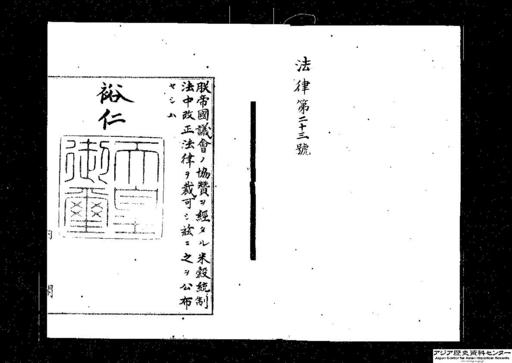 法律第二十三號
朕帝國議會ノ協贊ヲ經タル米穀統制
法中改正法律ヲ裁可シ茲ニ之ヲ公布
セシム
裕仁
天皇
御璽
内閣
アジア歴史資料センター
Japan Center for Asian Historical Records